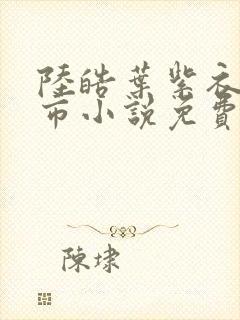 陸皓葉紫衣
市小説免費
陳埭